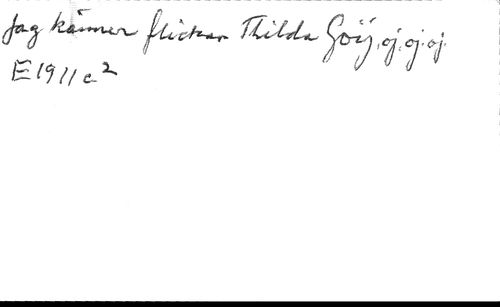 Jag känner flickan Thilda Göij, oj, oj, oj.
E1911c²